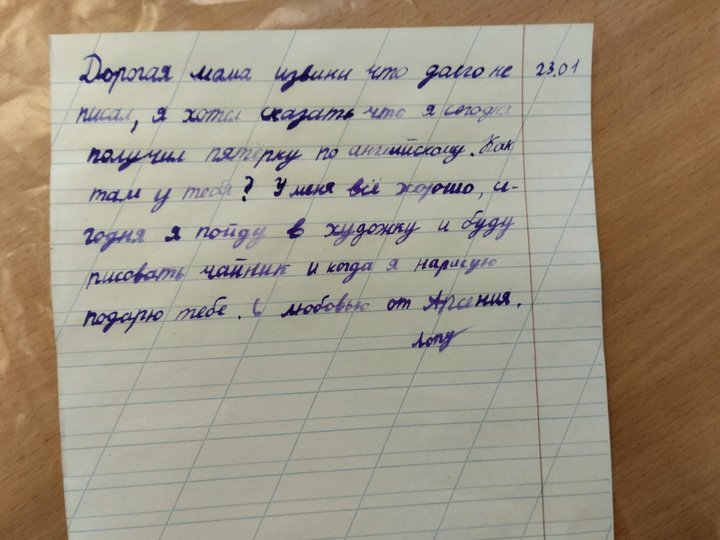 Дорогая мама извини что долго не 23.01
писал, я хотел сказать что я сегодня
получил пятёрку по английскому. Как
там у тебя? У меня всё хорошо, се-
годня я пойду в художку и буду
рисовать чайник и когда я нарисую
подарю тебе. С любовью от Арсения.